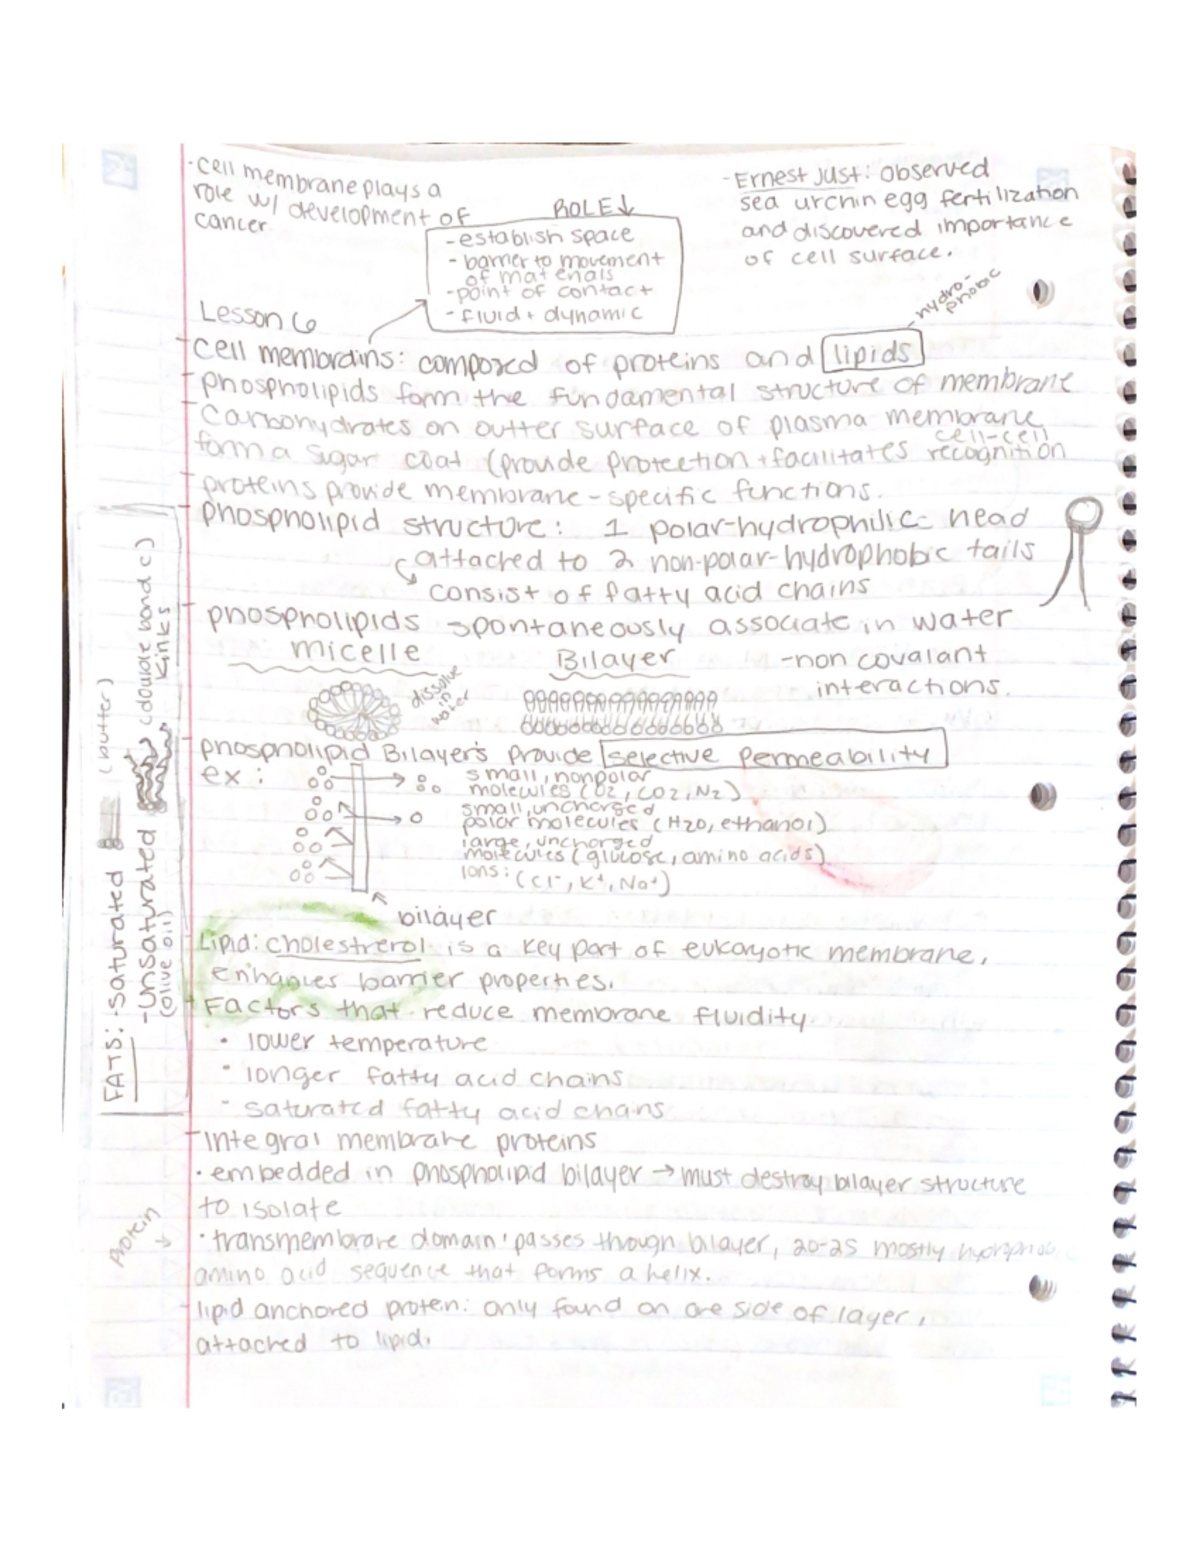 · cell membrane plays a
role w/ development of
cancer
ROLE↓
- establish space
- barrier to movement
of materials
- point of contact
- fluid + dynamic
- Ernest Just: observed
sea urchin egg fertilization
and discovered importance
of cell surface.
Lesson 6
- hydro-
phobic
- cell membrains: composed of proteins and lipids
- phospholipids form the fundamental structure of membrane
- Carbohydrates on outter surface of plasma membrane
form a sugar coat (provide protection + facilitates cell-cell recognition
- proteins provide membrane-specific functions.
- phospholipid structure: 1 polar-hydrophilic- head
attached to 2 non-polar-hydrophobic tails
consist of fatty acid chains
- phospholipids spontaneously associate in water
micelle
Bilayer
- non covalant
interactions.
dissolve
in
water
- phospholipid Bilayer's provide selective permeability
ex:
small, nonpolar
molecules (O2, CO2, N2)
small, uncharged
polar molecules (H2O, ethanol)
large, uncharged
molecules (glucose, amino acids)
Ions: (Cl-, K+, Na+)
bilayer
- Lipid: cholestrerol is a key part of eukaryotic membrane,
enhances barrier properties.
- Factors that reduce membrane fluidity
· lower temperature
· longer fatty acid chains
· saturated fatty acid chans
- Integral membrane proteins
· embedded in phospholipid bilayer → must destroy bilayer structure
to isolate
· transmembrane domain: passes though bilayer, 20-25 mostly
amino acid sequence that forms a helix.
- lipid anchored protein: only found on one side of layer,
attached to lipid.
FATS: - saturated (butter)
- unsaturated (double bond c)
(olive oil)
kinks
Protein
→